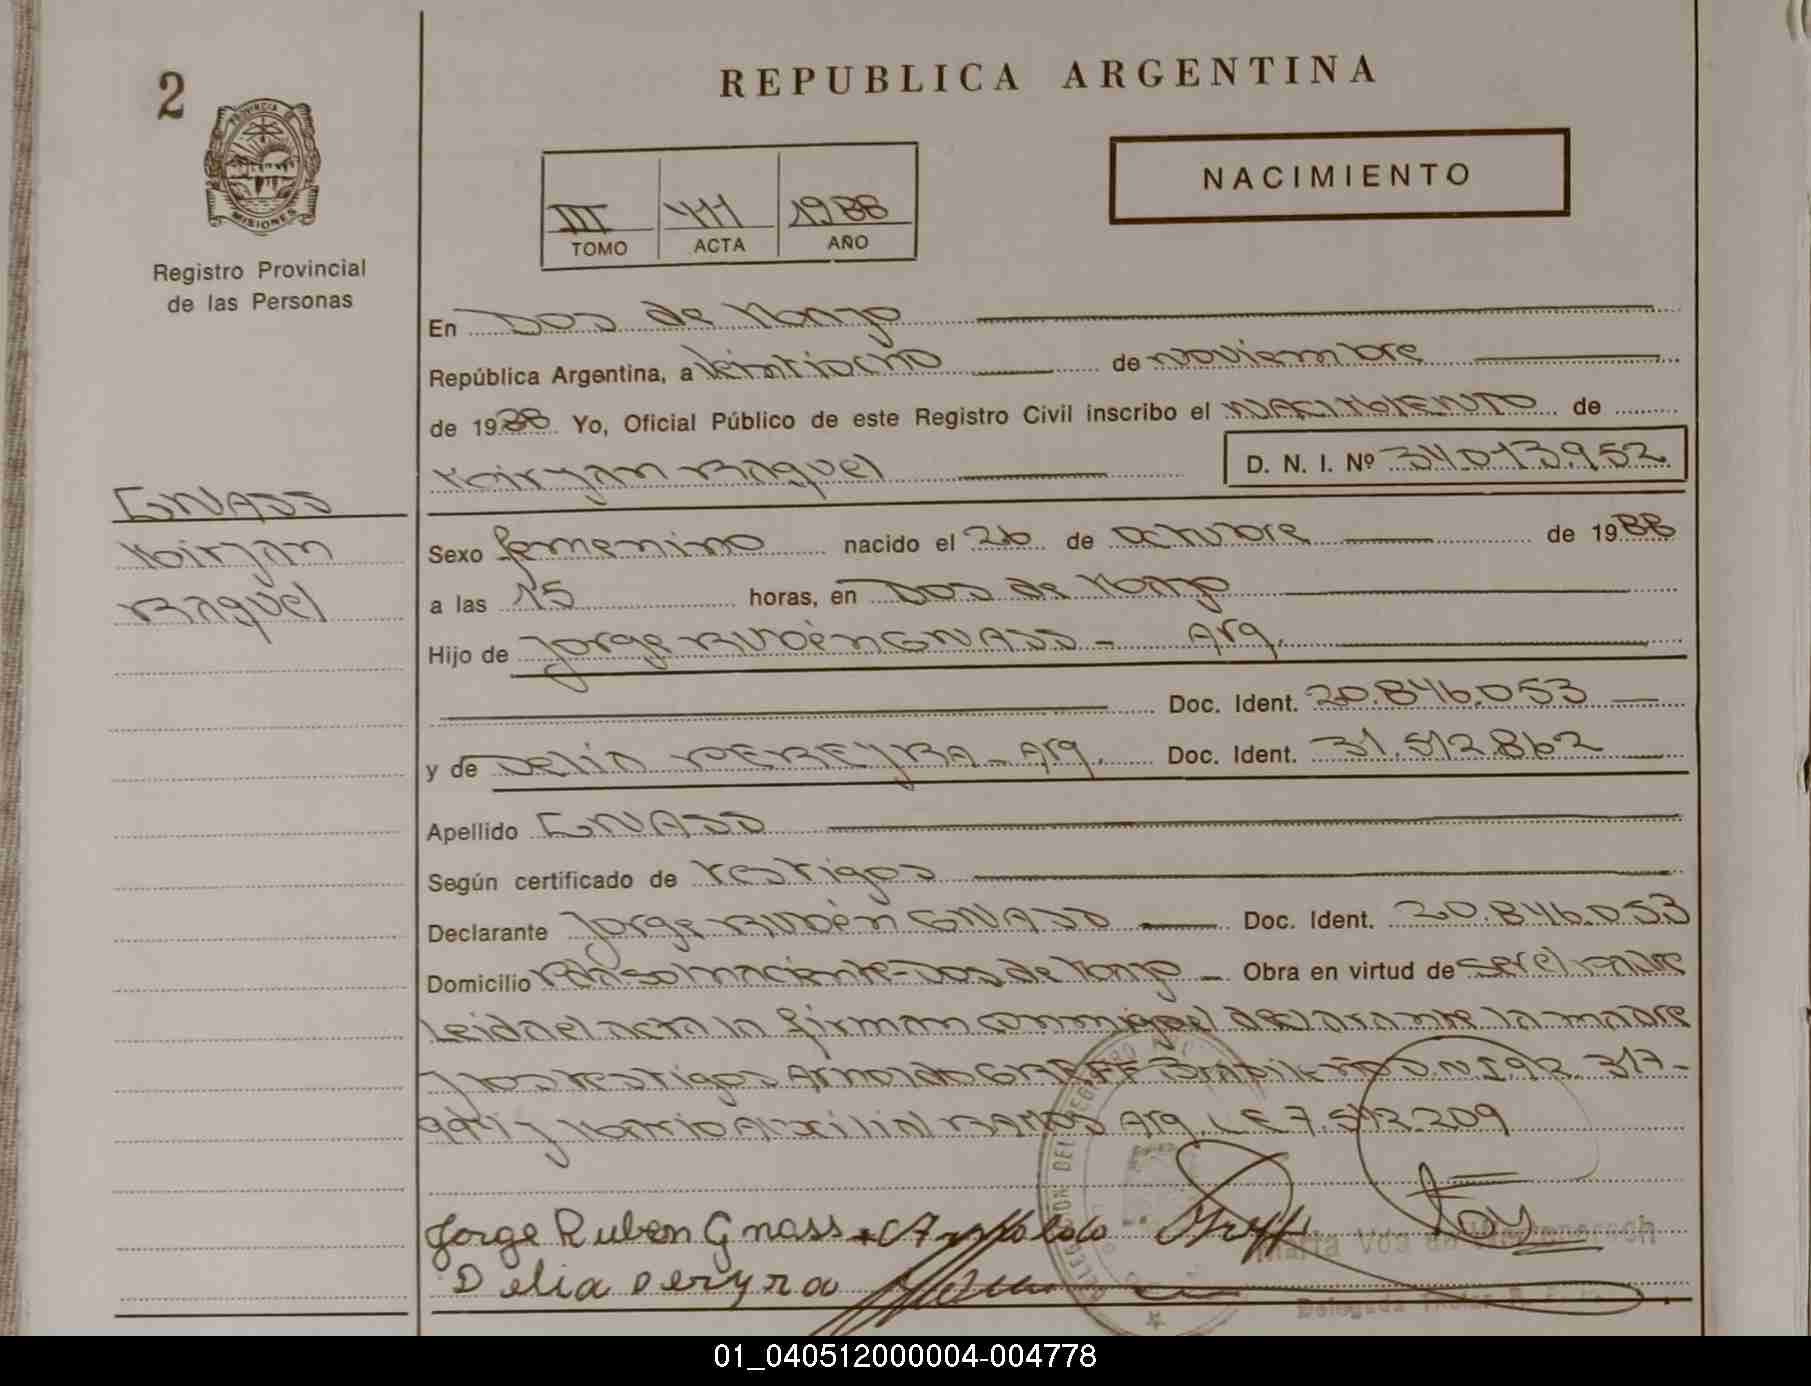 2
REPUBLICA ARGENTINA
PROVINCIA DE
MISIONES
NACIMIENTO
III 411 1988
TOMO ACTA AÑO
Registro Provincial
de las Personas
En Dos de Mayo
República Argentina, a veintiocho de noviembre
de 1988 Yo, Oficial Público de este Registro Civil inscribo el NACIMIENTO de
Mirjan Raquel D. N. I. Nº 34.013.952
GNASS
Mirjan
Raquel
Sexo femenino nacido el 26 de octubre de 1988
a las 15 horas, en Dos de Mayo
Hijo de Jorge Rubén GNASS - Arg.
Doc. Ident. 20.846.053
y de Delia PEREYRA - Arg. Doc. Ident. 31.512.862
Apellido GNASS
Según certificado de testigos
Declarante Jorge Rubén GNASS Doc. Ident. 20.846.053
Domicilio - Dos de Mayo - Obra en virtud de ser el padre
Leida el acta la firman conmigo el declarante la madre
y los testigos Arnoldo GRAFF Brasileño D.N.I 92.317-
994 y Mario Auxilial RAMOS Arg. L.E 7.512.209
Jorge Ruben Gnass Arnoldo Graff
Delia Pereyra
01_040512000004-004778